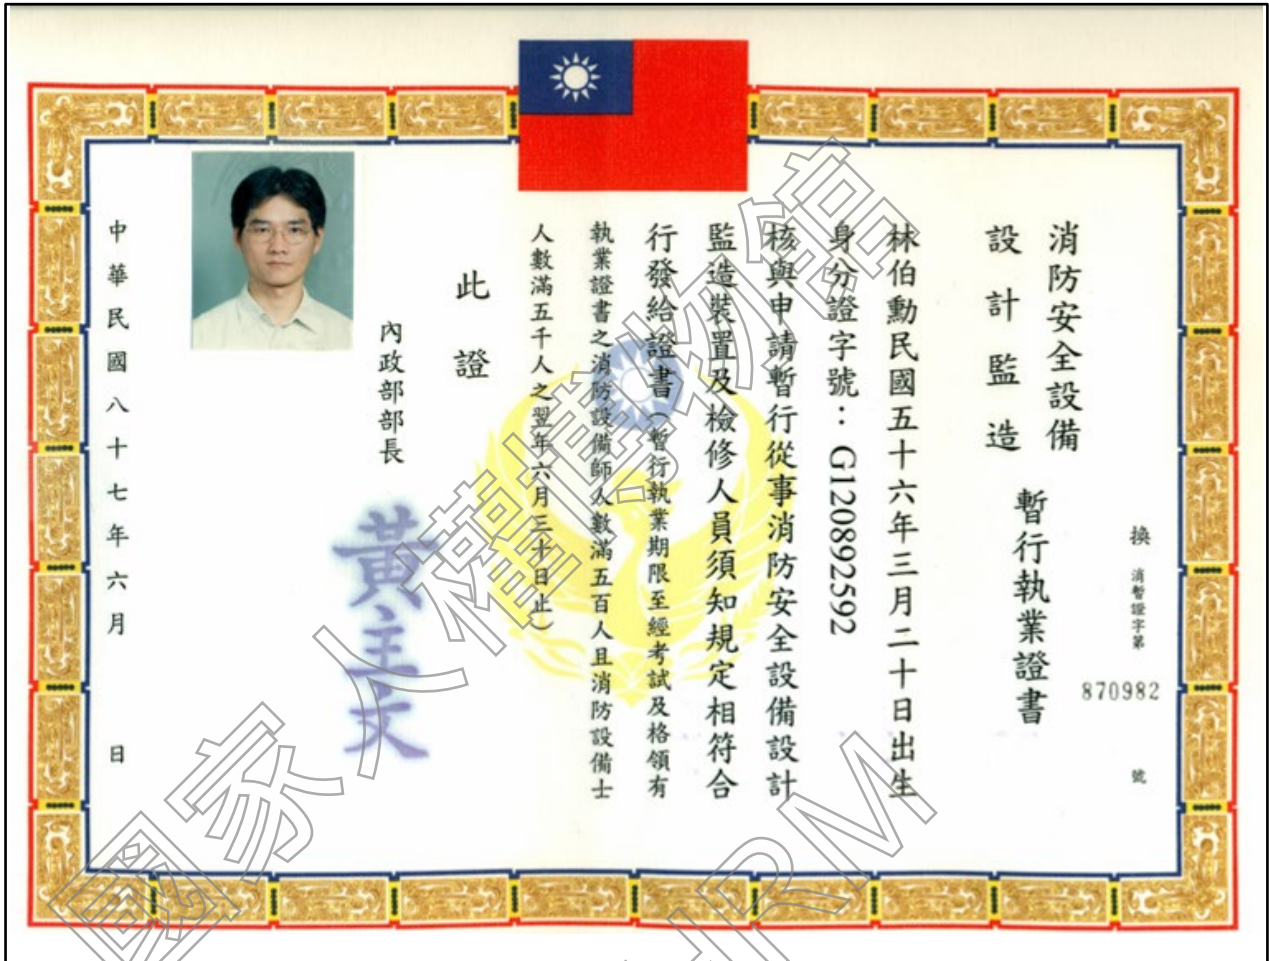 換
消暫證字第
870982
號
消防安全設備
設計監造
暫行執業證書
林伯勳民國五十六年三月二十日出生
身分證字號：G120892592
核與申請暫行從事消防安全設備設計
監造裝置及檢修人員須知規定相符合
行發給證書（暫行執業期限至經考試及格領有
執業證書之消防設備師人數滿五百人且消防設備士
人數滿五千人之翌年六月三十日止）
此證
內政部部長
黃主文
中華民國八十七年六月 日
國家人權博物館
HRM